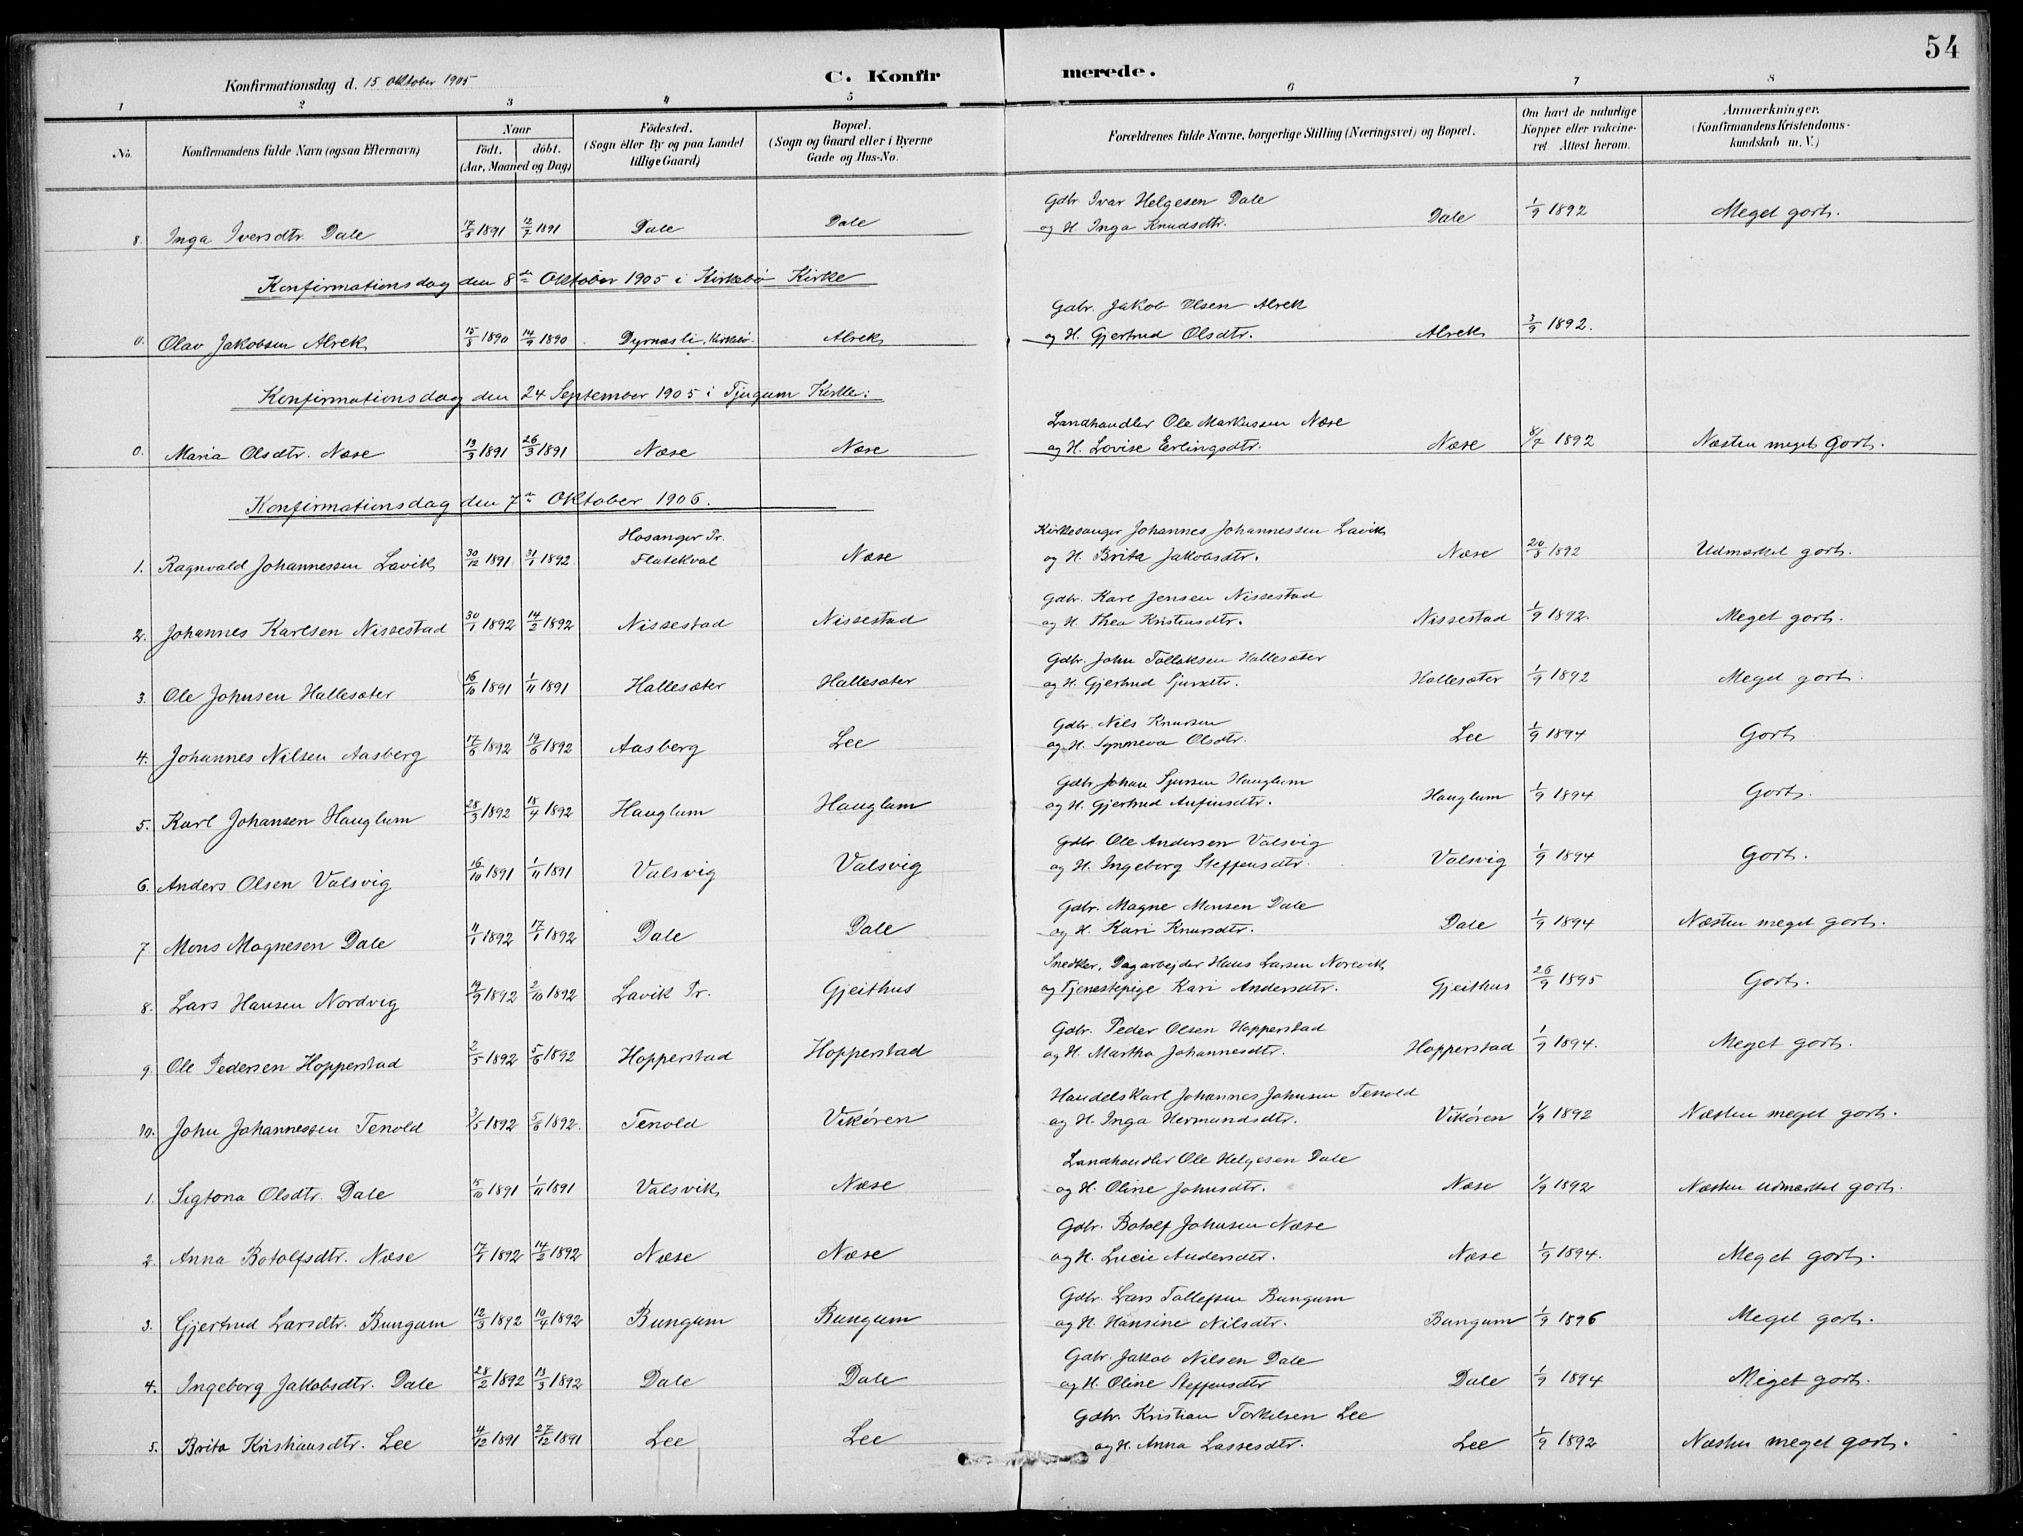 54
Konfirmationsdag d. 15 Oktober 1905
C. Konfirmerede.
1 2 3 4 5 6 7 8
No.
Konfirmandens fulde Navn (ogsaa Efternavn)
Naar
födt. döbt.
(Aar, Maaned og Dag)
Födested.
(Sogn eller By og paa Landet tillige Gaard)
Bopæl.
(Sogn og Gaard eller i Byerne Gade og Hus-No.
Forældrenes fulde Navne, borgerlige Stilling (Næringsvei) og Bopæl.
Om havt de naturlige Kopper eller vakcineret. Attest herom.
Anmærkninger.
(Konfirmandens Kristendomskundskab m. V.)
Gdbr. Ivar Helgesen Dale
8. Inga Iversdtr. Dale 17/5 1891 12/7 1891 Dale Dale og H. Inga Knudsdtr. Dale 1/9 1892 Meget godt.
Konfirmationsdag den 8de Oktober 1905 i Kirkebø Kirke
Gdbr. Jakob Olsen Alrek
0. Olav Jakobsen Alrek 15/8 1890 14/9 1890 Dyrnesli, Kirkebø. Alrek og H. Gjertrud Olsdtr. Alrek 3/9 1892.
Konfirmationsdag den 24 September 1905 i Tjugum Kirke:
Landhandler Ole Markussen Næse
0. Maria Olsdtr. Næse 13/3 1891 26/3 1891 Næse Næse og H. Lovise Erlingsdtr. Næse 8/7 1892 Næsten meget godt.
Konfirmationsdag den 7de Oktober 1906.
Hosanger Pr. Kirkesanger Johannes Johannessen Lavik
1. Ragnvald Johannessen Lavik 30/12 1891 31/1 1892 Flatekval Næse og H. Brita Jakobsdtr. Næse 20/8 1892 Udmærket godt.
Gdbr. Karl Jensen Nissestad
2. Johannes Karlsen Nissestad 30/1 1892 14/2 1892 Nissestad Nissestad og H. Thea Kristensdtr. Nissestad 1/9 1892. Meget godt.
Gdbr. John Tollaksen Hallesæter
3. Ole Johnsen Hallesæter 16/10 1891 1/11 1891 Hallesæter Hallesæter og H. Gjertrud Sjursdtr. Hallesæter 1/9 1892 Meget godt.
Gdbr. Nils Knutsen
4. Johannes Nilsen Aasberg 17/6 1892 19/6 1892 Aasberg Lee og H. Synneva Olsdtr. Lee 1/9 1894 Godt
Gdbr. Johan Sjursen Hauglum
5. Karl Johansen Hauglum 28/3 1892 18/4 1892 Hauglum Hauglum og H. Gjertrud Anfinsdtr. Hauglum 1/9 1894 Godt.
Gdbr. Ole Andersen Valsvig
6. Anders Olsen Valsvig 16/10 1891 1/11 1891 Valsvig Valsvig og H. Ingeborg Steffensdtr. Valsvig 1/9 1894 Godt.
Gdbr. Magne Monsen Dale
7 Mons Magnesen Dale 11/1 1892 17/1 1892 Dale Dale og H. Kari Knutsdtr. Dale 1/9 1894 Næsten meget godt.
Snedker, Dagarbejder Hans Larsen Nordvik
8. Lars Hansen Nordvig 14/9 1892 2/10 1892 Lavik Pr. Gjeithus og Tjenestepige Kari Andersdtr. Gjeithus 26/9 1895 Godt.
Gdbr. Peder Olsen Hopperstad
9. Ole Pedersen Hopperstad 2/5 1892 5/6 1892 Hopperstad Hopperstad og H. Martha Johannesdtr. Hopperstad 1/9 1894. Meget godt.
Handelskarl Johannes Johnsen Tenold
10. John Johannessen Tenold 3/5 1892 5/6 1892. Tenold Vikøren og H. Inga Hermundsdtr. Vikøren 1/9 1892 Næsten meget godt.
Landhandler Ole Helgesen Dale
1. Sigtona Olsdtr. Dale 15/10 1891 1/11 1891 Valsvik Næse og H. Oline Johnsdtr. Næse 1/9 1892 Næsten udmærket godt.
Gdbr. Botolf Johnsen Næse
2. Anna Botolfsdtr. Næse 17/1 1892 14/2 1892 Næse Næse og H. Lucie Andersdtr. Næse 1/9 1894. Meget godt.
Gdbr. Lars Tollefsen Bungum
3. Gjertrud Larsdtr. Bungum 12/3 1892 10/4 1892 Bungum Bungum og H. Hansine Nilsdtr. Bungum 1/9 1896 Meget godt.
Gdbr. Jakob Nilsen Dale
4. Ingeborg Jakobsdtr. Dale 28/2 1892 13/3 1892 Dale Dale og H. Oline Steffensdtr Dale 1/9 1894 Meget godt.
Gdbr. Kristian Torkilsen Lee
5. Brita Kristiansdtr. Lee 4/12 1891 27/12 1891 Lee Lee og H. Anna Lassesdtr. Lee 1/9 1892 Næsten meget godt.